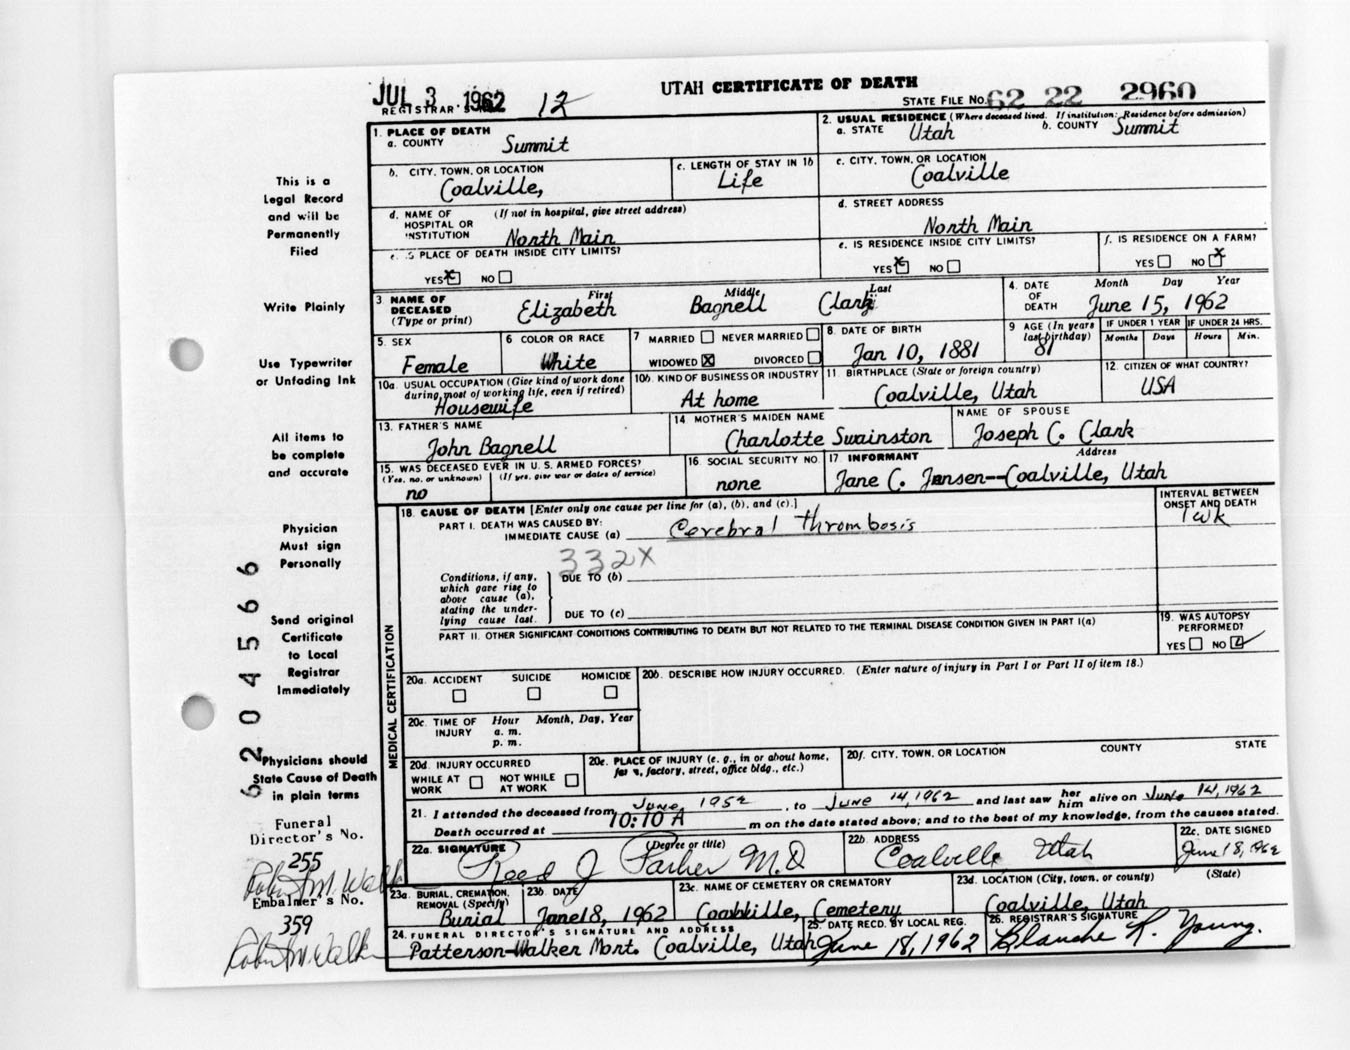 JUL 3 1962 12
REGISTRAR'S NO.
UTAH CERTIFICATE OF DEATH
STATE FILE No. 62 22 2960
1. PLACE OF DEATH
a. COUNTY Summit
2. USUAL RESIDENCE (Where deceased lived. If institution: Residence before admission)
a. STATE Utah b. COUNTY Summit
b. CITY, TOWN, OR LOCATION
Coalville,
c. LENGTH OF STAY IN 1b
Life
c. CITY, TOWN, OR LOCATION
Coalville
d. NAME OF HOSPITAL OR INSTITUTION (If not in hospital, give street address)
North Main
d. STREET ADDRESS
North Main
e. IS PLACE OF DEATH INSIDE CITY LIMITS?
YES X NO
e. IS RESIDENCE INSIDE CITY LIMITS?
YES X NO
f. IS RESIDENCE ON A FARM?
YES NO X
3 NAME OF DECEASED (Type or print)
First Middle Last
Elizabeth Bagnell Clark
4. DATE OF DEATH
Month Day Year
June 15, 1962
5. SEX
Female
6 COLOR OR RACE
White
7 MARRIED NEVER MARRIED
WIDOWED X DIVORCED
8. DATE OF BIRTH
Jan 10, 1881
9 AGE (In years last birthday)
81
IF UNDER 1 YEAR
Months Days
IF UNDER 24 HRS.
Hours Min.
10a. USUAL OCCUPATION (Give kind of work done during most of working life, even if retired)
Housewife
10b. KIND OF BUSINESS OR INDUSTRY
At home
11 BIRTHPLACE (State or foreign country)
Coalville, Utah
12. CITIZEN OF WHAT COUNTRY?
USA
13. FATHER'S NAME
John Bagnell
14 MOTHER'S MAIDEN NAME
Charlotte Swainston
NAME OF SPOUSE
Joseph C. Clark
15. WAS DECEASED EVER IN U. S. ARMED FORCES?
(Yes, no, or unknown) (If yes, give war or dates of service)
no
16. SOCIAL SECURITY NO.
none
17 INFORMANT Address
Jane C. Jensen--Coalville, Utah
MEDICAL CERTIFICATION
18. CAUSE OF DEATH [Enter only one cause per line for (a), (b), and (c).]
PART I. DEATH WAS CAUSED BY:
IMMEDIATE CAUSE (a) Cerebral thrombosis
INTERVAL BETWEEN ONSET AND DEATH
1 wk
332X
Conditions, if any, which gave rise to above cause (a), stating the underlying cause last.
DUE TO (b)
DUE TO (c)
PART II. OTHER SIGNIFICANT CONDITIONS CONTRIBUTING TO DEATH BUT NOT RELATED TO THE TERMINAL DISEASE CONDITION GIVEN IN PART I(a)
19. WAS AUTOPSY PERFORMED?
YES NO
20a. ACCIDENT SUICIDE HOMICIDE
20b. DESCRIBE HOW INJURY OCCURRED. (Enter nature of injury in Part I or Part II of item 18.)
20c. TIME OF INJURY Hour Month, Day, Year
a. m.
p. m.
20d. INJURY OCCURRED
WHILE AT WORK NOT WHILE AT WORK
20e. PLACE OF INJURY (e. g., in or about home, farm, factory, street, office bldg., etc.)
20f. CITY, TOWN, OR LOCATION COUNTY STATE
21. I attended the deceased from June, 1952, to June 14, 1962 and last saw her him alive on June 14, 1962
Death occurred at 10:10 A m on the date stated above; and to the best of my knowledge, from the causes stated.
22a. SIGNATURE (Degree or title)
Reed J Parker M.D
22b. ADDRESS
Coalville Utah
22c. DATE SIGNED
June 18, 1962
23a. BURIAL, CREMATION, REMOVAL (Specify)
Burial
23b. DATE
June 18, 1962
23c. NAME OF CEMETERY OR CREMATORY
Coalville, Cemetery
23d. LOCATION (City, town, or county) (State)
Coalville, Utah
24. FUNERAL DIRECTOR'S SIGNATURE AND ADDRESS
Patterson-Walker Mort. Coalville, Utah
25. DATE RECD. BY LOCAL REG.
June 18, 1962
26. REGISTRAR'S SIGNATURE
Blanche R. Young.
This is a
Legal Record
and will be
Permanently
Filed
Write Plainly
Use Typewriter
or Unfading Ink
All items to
be complete
and accurate
Physician
Must sign
Personally
Send original
Certificate
to Local
Registrar
Immediately
Physicians should
State Cause of Death
in plain terms
6204566
Funeral
Director's No.
255
Embalmer's No.
359